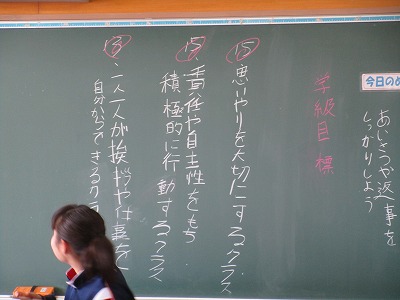 今日のめ
あいさつや返事を
しっかりしよう
学級目標
15 ・思いやりを大切にするクラス
15 ・責任や自主性をもち
積極的に行動するクラス
13 ・一人一人が挨拶や仕事を
自分からできるクラ